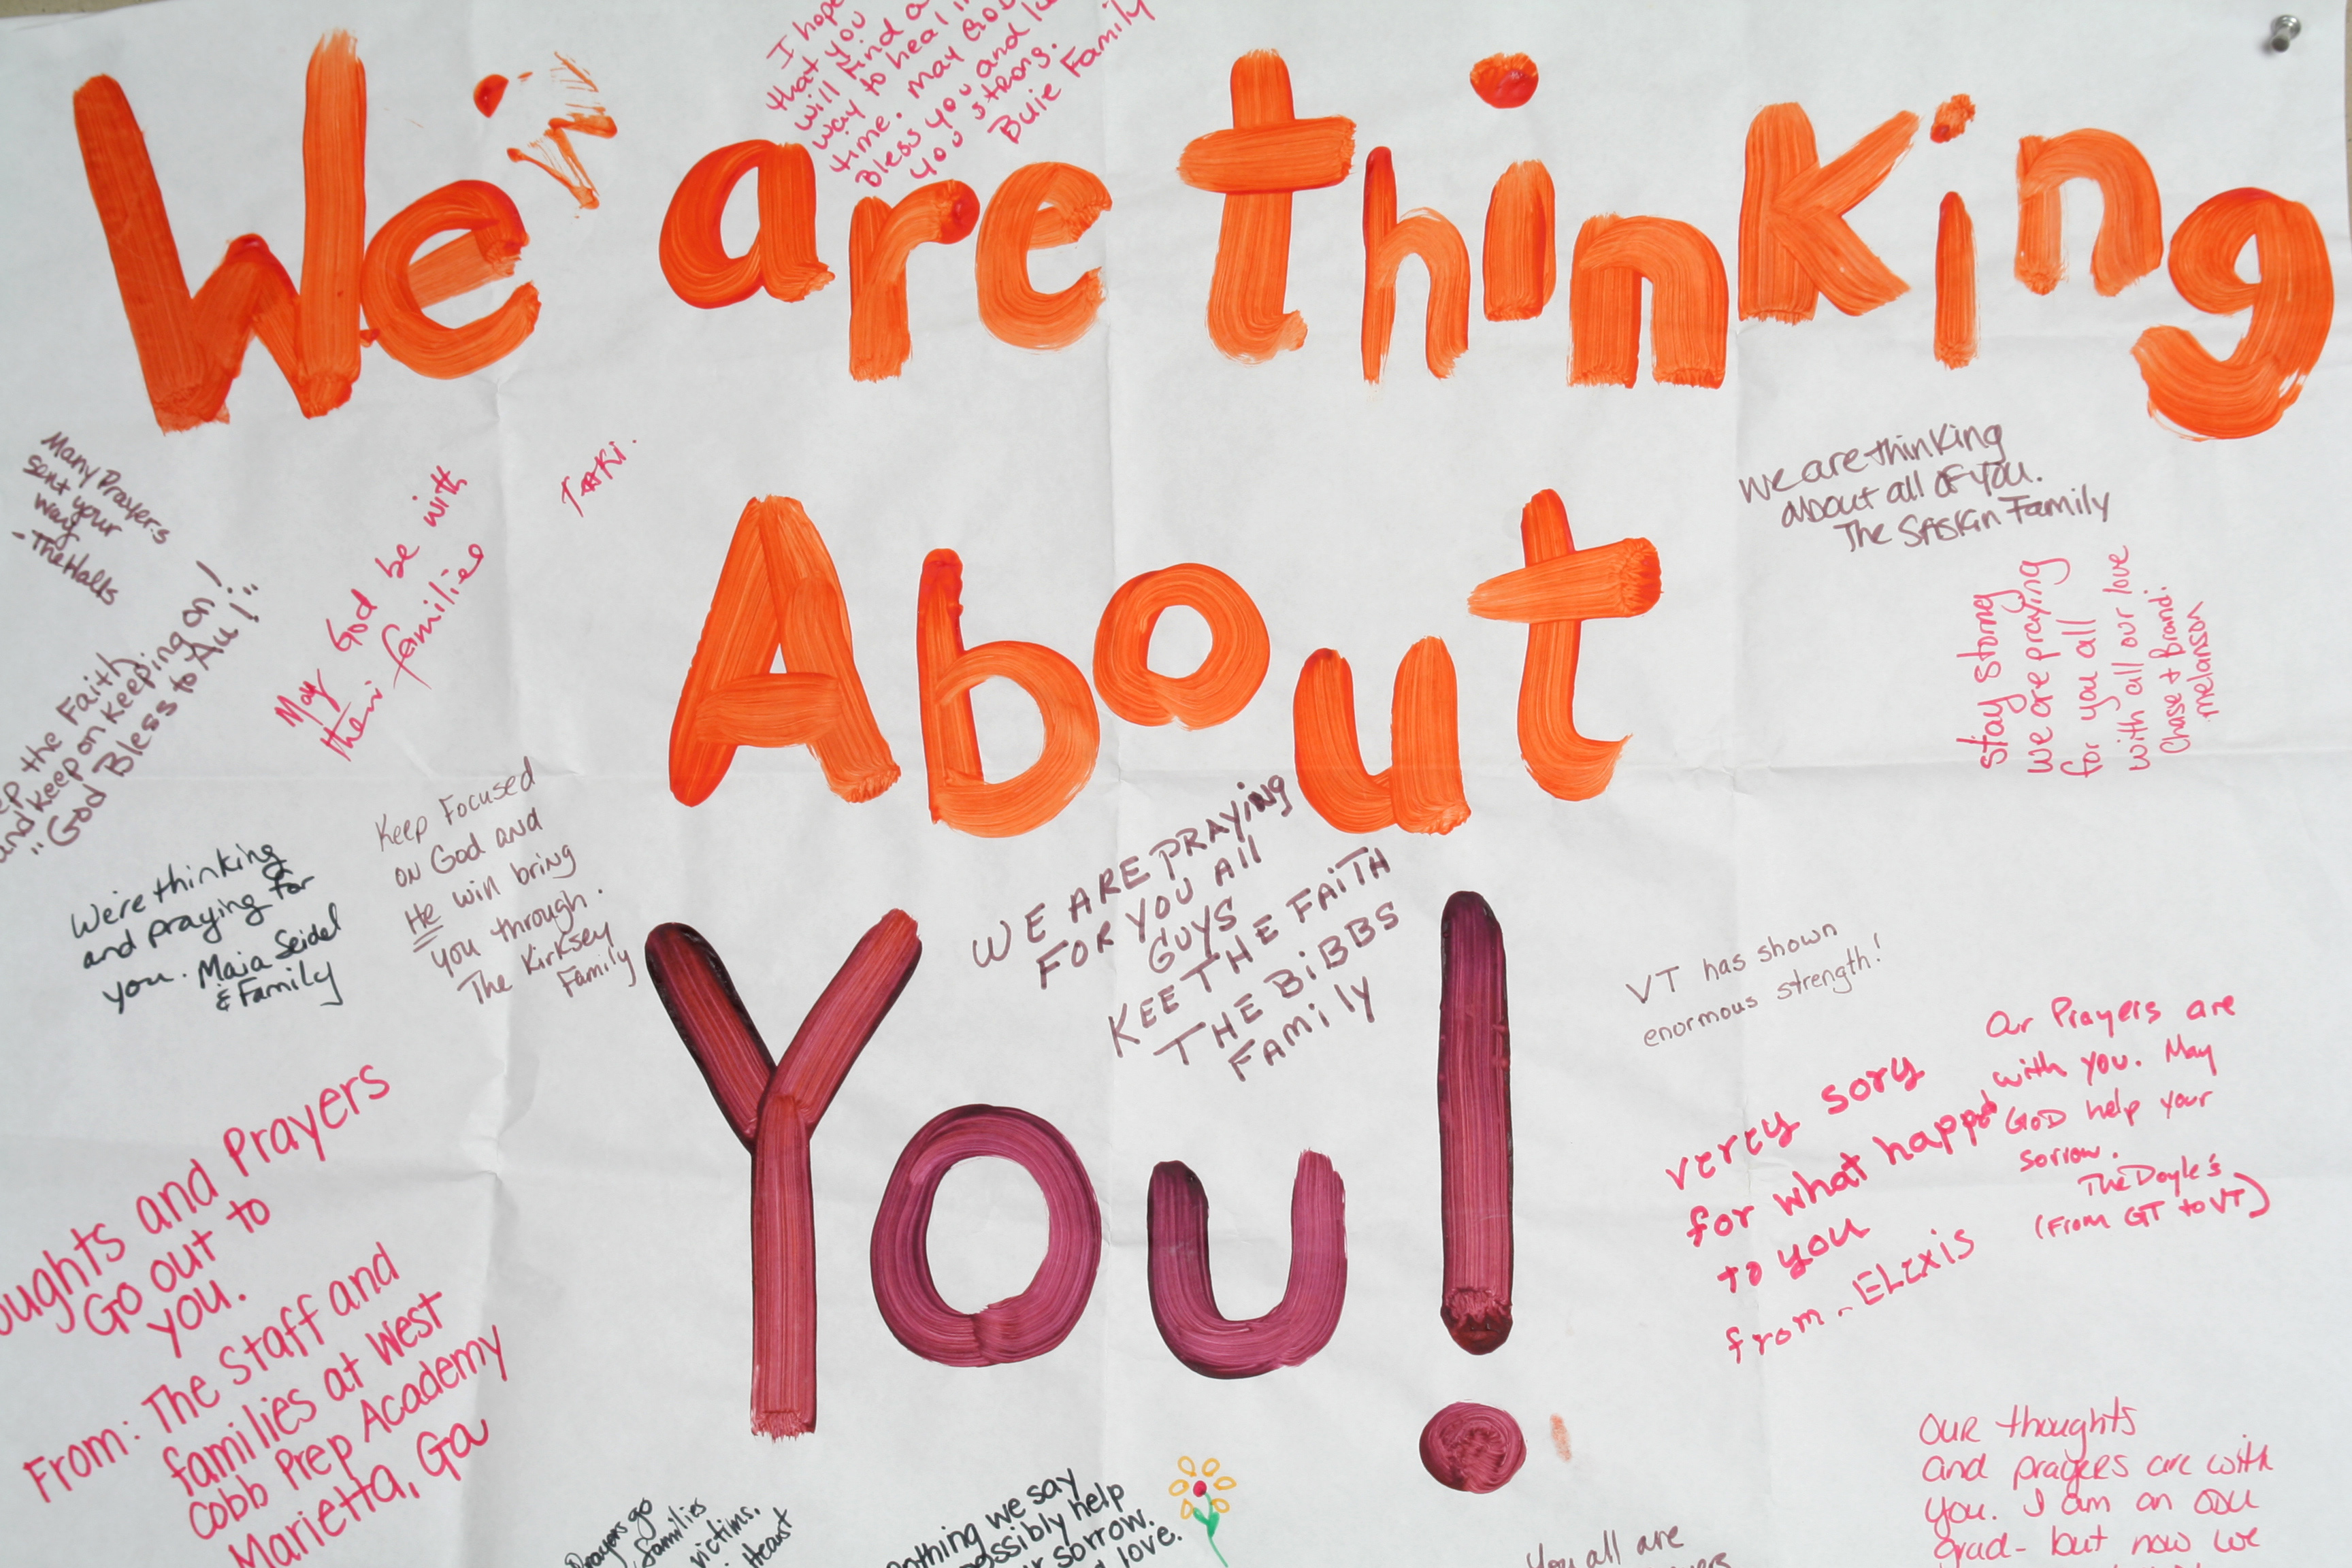 I hope
that you
will find a
way to heal in
time. May God
Bless you and
you strong.
Bulie Family
We are thinking
About
You!
Many Prayers
sent your
way
- The Halls
May God be with
their families
We are thinking
about all OF YOU.
The Family
the Faith
and keep on keeping on!
"God Bless to All!"
stay strong
we are praying
for you all
with all our love
Chase + Brandi
melanson
Keep Focused
on God and
He will bring
you through.
The Kirksey
Family
We're thinking
and praying for
you. Maia Seidel
& Family
WE ARE PRAYING
FOR YOU All
GUYS
KEE THE FAITH
THE BiBBS
FAMily
VT has shown
enormous strength!
Our Prayers are
with you. May
GOD help your
sorrow.
The Doyle's
(From GT to VT)
verey sory
for what happd
to you
from - ELexis
oughts and Prayers
Go out to
you.
From: The Staff and
families at West
Cobb Prep Academy
Marietta, Ga
Prayers go
families
victims.
Heart
nothing we say
possibly help
sorrow.
love.
You all are
OUR thoughts
and prayers are with
you. I am an ODU
grad- but now we